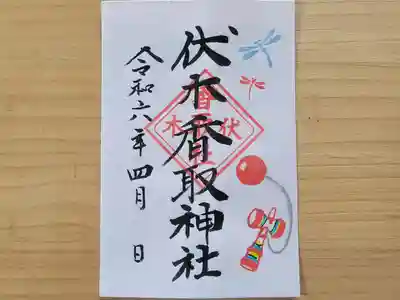 伏木香取神社
令和六年四月 日